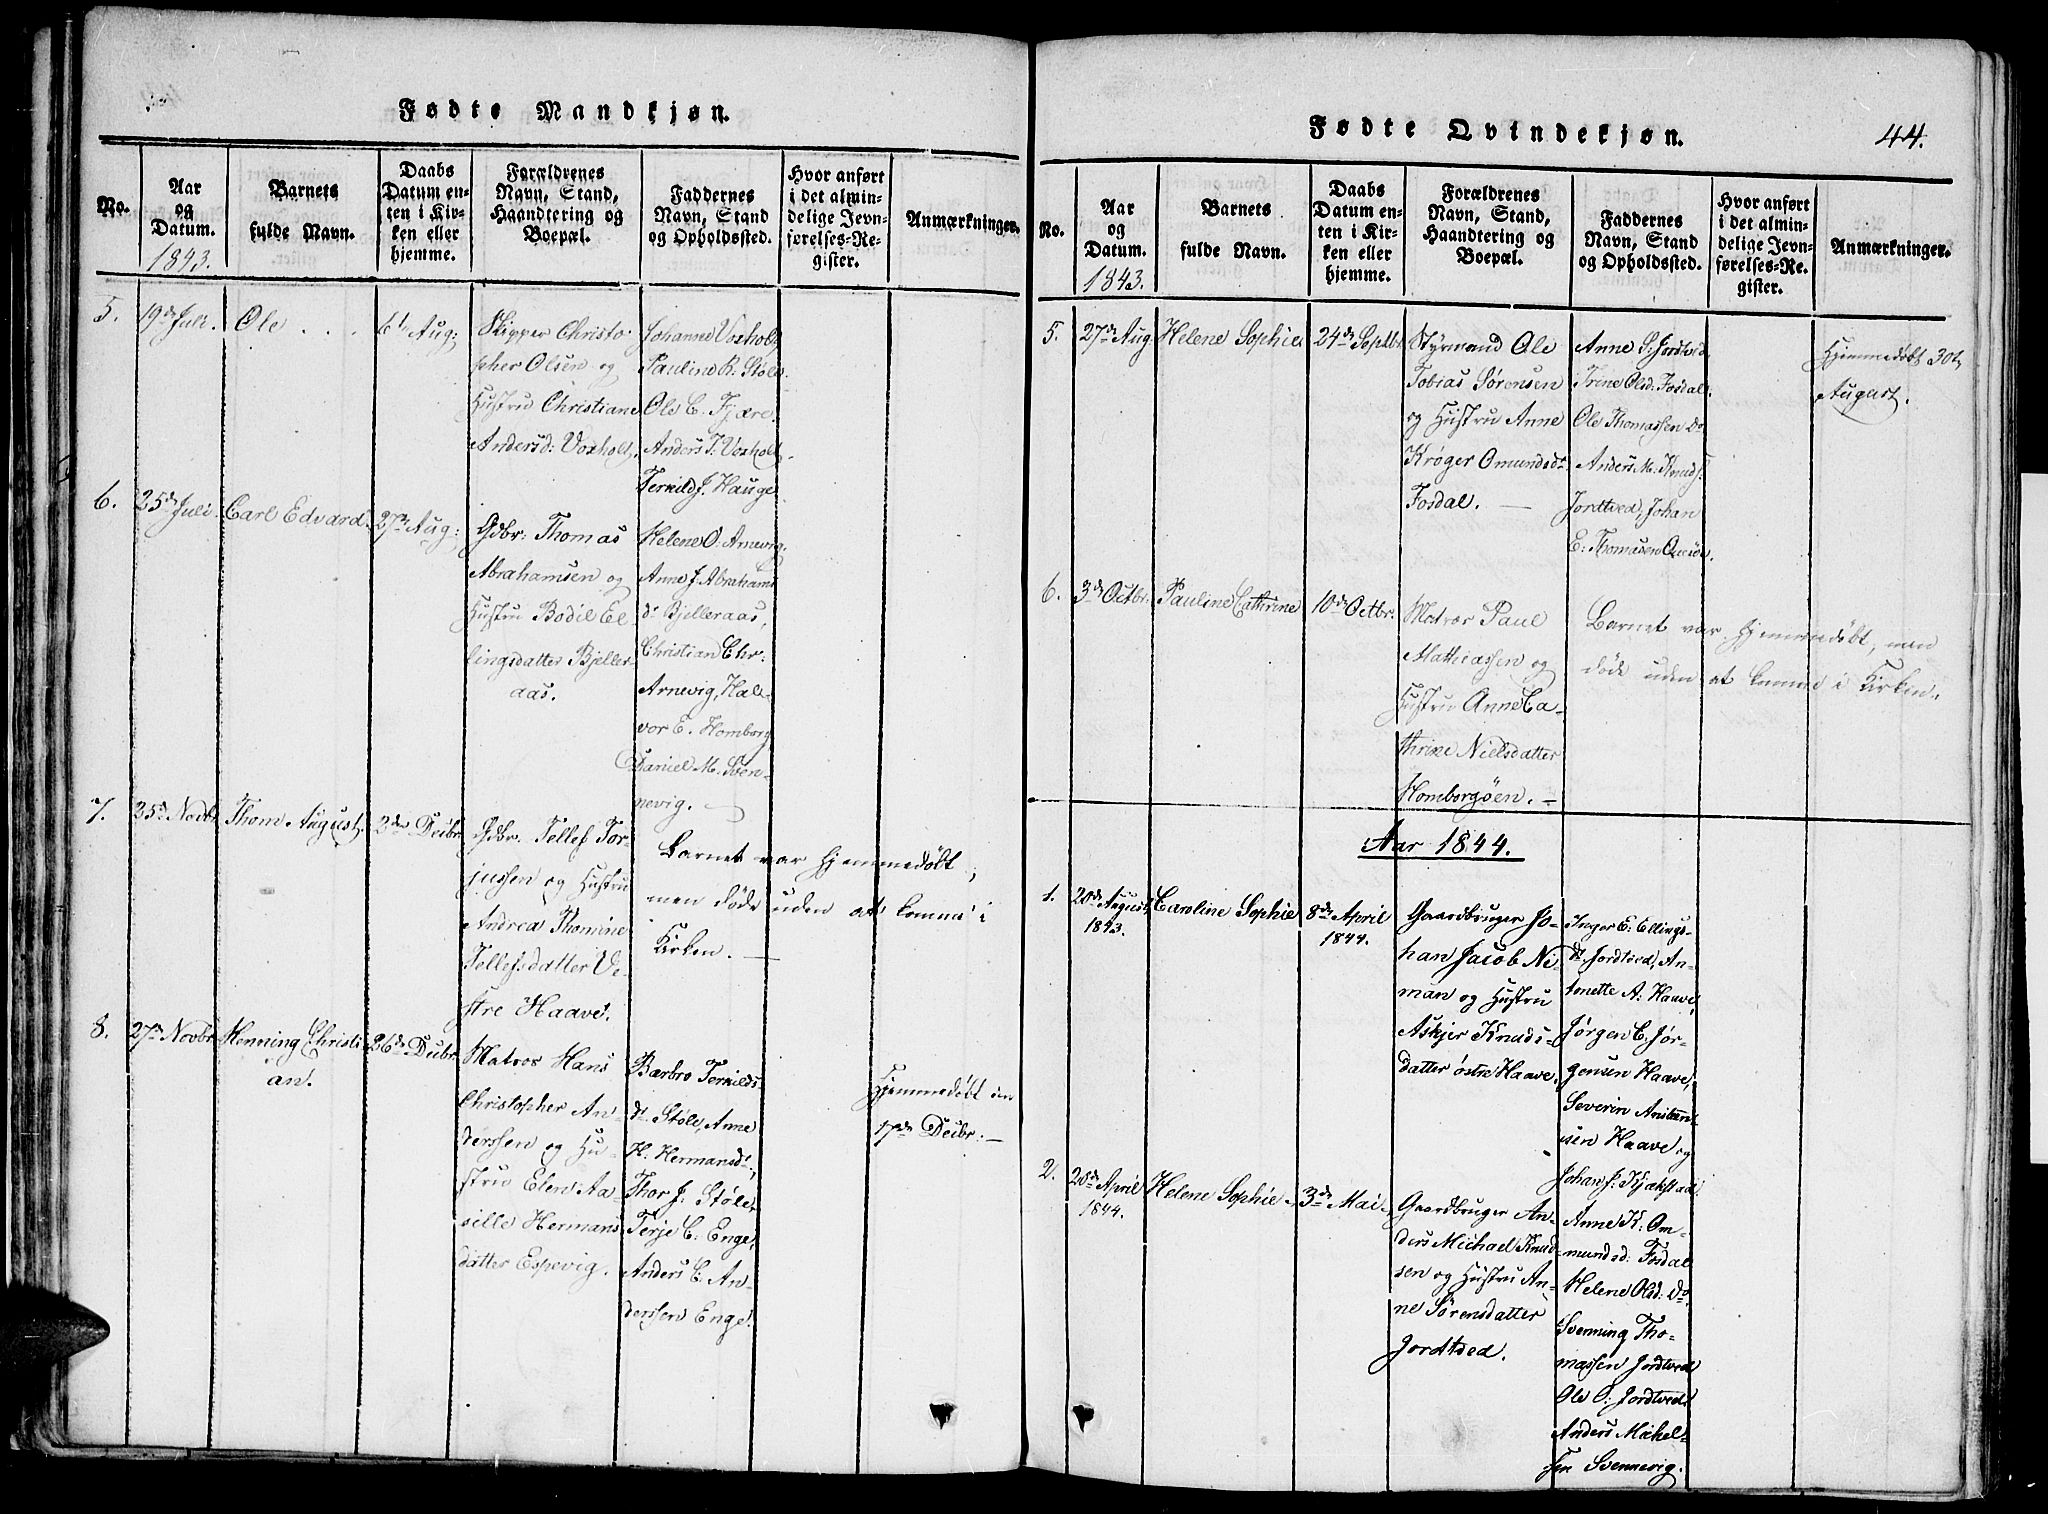 Fødte Mandkjøn.
No.
Aar
og
Datum.
1843.
Barnets
fulde Navn.
Daabs
Datum en-
ten i Kir-
ken eller
hjemme.
Forældrenes
Navn, Stand,
Haandtering og
Boepæl.
Faddernes
Navn, Stand
og Opholdssted.
Hvor anført
i det almin-
delige Jevn-
førelses-Re-
gister.
Anmærkninger.
5.
19de Juli.
Ole . . .
6te Aug:
Skipper Christo-
pher Olsen og
Hustru Christiane
Andersd: Voxholt.
Johanne Voxholt,
Pauline R. Støle.
Ole C. Fjære.
Anders T: Voxholt.
Terkild J. Hauge
6.
25de Juli.
Carl Edvard.
27de Aug:
Gdbr: Thomas
Abrahamsen og
Hustru Bodil El-
lingsdatter Bjeller-
aas.
Helene O: Arnevig.
Anne J. Abrahams
dr Bjelleraas,
Christian Chr:
Arnevig, Hal-
vor E. Homborg
Daniel M. Sven-
nevig. —
7.
25de Novbr
Thom August.
2den Decbr.
Gdbr. Tellef Tor-
jussen og Hustru
Andrea Thomine
Tellefsdatter Ve-
stre Haave.
Barnet var hjemmedøbt,
men døde uden at komme i
Kirken. —
8.
27de Novbr
Henning Christi-
an.
26de Decbr.
Matros Hans
Christopher An-
derssen og Hu-
stru Elen Aa-
sille Hermans
datter Espevig.
Barbro Terkilds
dr. Støle, Anne
H. Hermansdr,
Thor J: Støle,
Terje C: Enge,
Anders C. An-
derssen Enge.
Hjemmedøbt den
17de Decbr: —
Fødte Qvindekjøn.
44.
No.
Aar
og
Datum.
1843.
Barnets
fulde Navn.
Daabs
Datum en-
ten i Kir-
ken eller
hjemme.
Forældrenes
Navn, Stand,
Haandtering og
Boepæl.
Faddernes
Navn, Stand
og Opholdssted.
Hvor anført
i det almin-
delige Jevn-
førelses-Re-
gister.
Anmærkninger.
5.
27de Aug
Helene Sophie
24de Septbr
Styrmand Ole
Tobias Sørensen
og Hustru Anne
Krøger Omundsdr
Fosdal. —
Anne S: Jordtved
Trine Olsd: Fosdal.
Ole Thomassen Do
Anders M: Knuds:
Jordtved, Johan
E: Thomasen
Hjemmedøbt 30te
August.
6.
3de Octbr.
Pauline Cathrine
10de Octbr.
Matros Paul
Mathiassen og
Hustru Anne Ca-
thrine Nielsdatter
Homborgøen. —
Barnet var hjemmedøbt, men
døde uden at komme i Kirken.
Aar 1844.
1.
20de August
1843.
Caroline Sophie
8de April
1844.
Gaardbruger Jo-
han Jacob Ni-
man og Hustru
Askjer Knuds-
datter østre Haave.
Inger E: Ellings-
dr. Jordtved, An-
tonette A: Haave,
Jørgen C: Jør-
gensen Haave,
Severin
sen Haave og
Johan J: Kjakstad.
2.
20de April
1844.
Helene Sophie.
3de Mai.
Gaardbruger An-
ders Michael Knud-
sen og Hustru An-
ne Sørensdatter
Jordtved.
Anne K: Om-
mundsd: Fosdal
Helene Olsd: Do.
Svenning Tho-
massen Jordtved
Ole O: Jordtved.
Anders Mickel-
sen Svennevig.